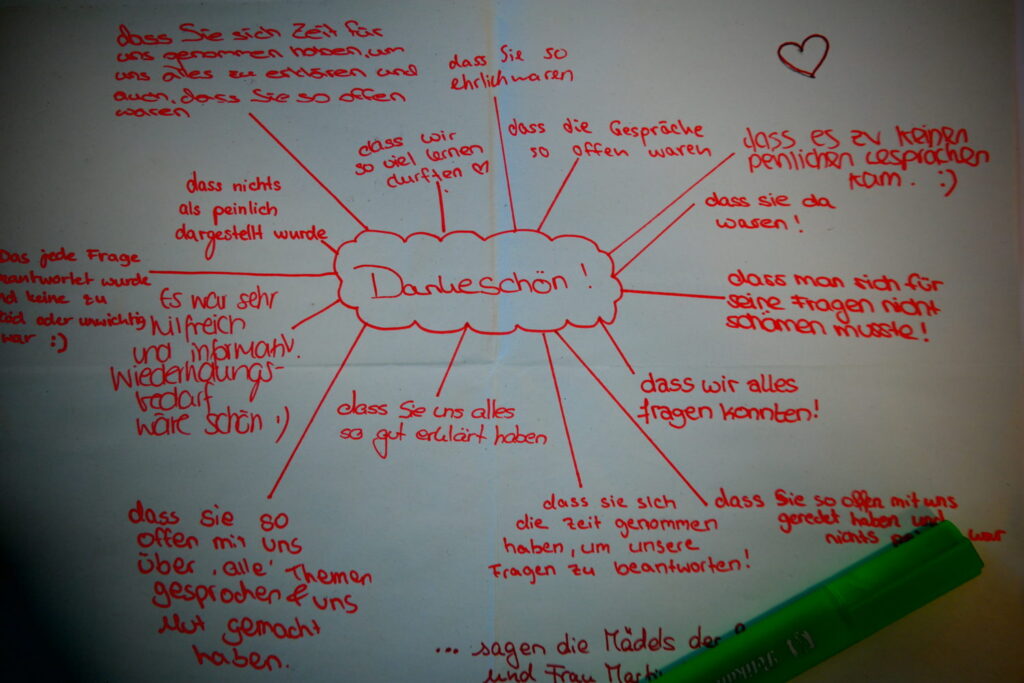 dass Sie sich Zeit für
uns genommen haben, um
uns alles zu erklären und
auch, dass Sie so offen
waren
dass Sie so
ehrlich waren
dass wir
so viel lernen
durften
dass die Gespräche
so offen waren
dass es zu keinen
peinlichen Gesprächen
kam. :)
dass nichts
als peinlich
dargestellt wurde
dass sie da
waren!
Das jede Frage
wurde
keine zu
oder unwichtig
war :)
Dankeschön!
dass man sich für
seine Fragen nicht
schämen musste!
Es war sehr
hilfreich
und informativ.
Wiederholungs-
bedarf
wäre schön :)
dass Sie uns alles
so gut erklärt haben
dass wir alles
fragen konnten!
dass sie so
offen mit uns
über 'alle' Themen
gesprochen & uns
Mut gemacht
haben.
dass sie sich
die Zeit genommen
haben, um unsere
Fragen zu beantworten!
dass Sie so offen mit uns
geredet haben und
nichts war
... sagen die Mädels der
und Frau